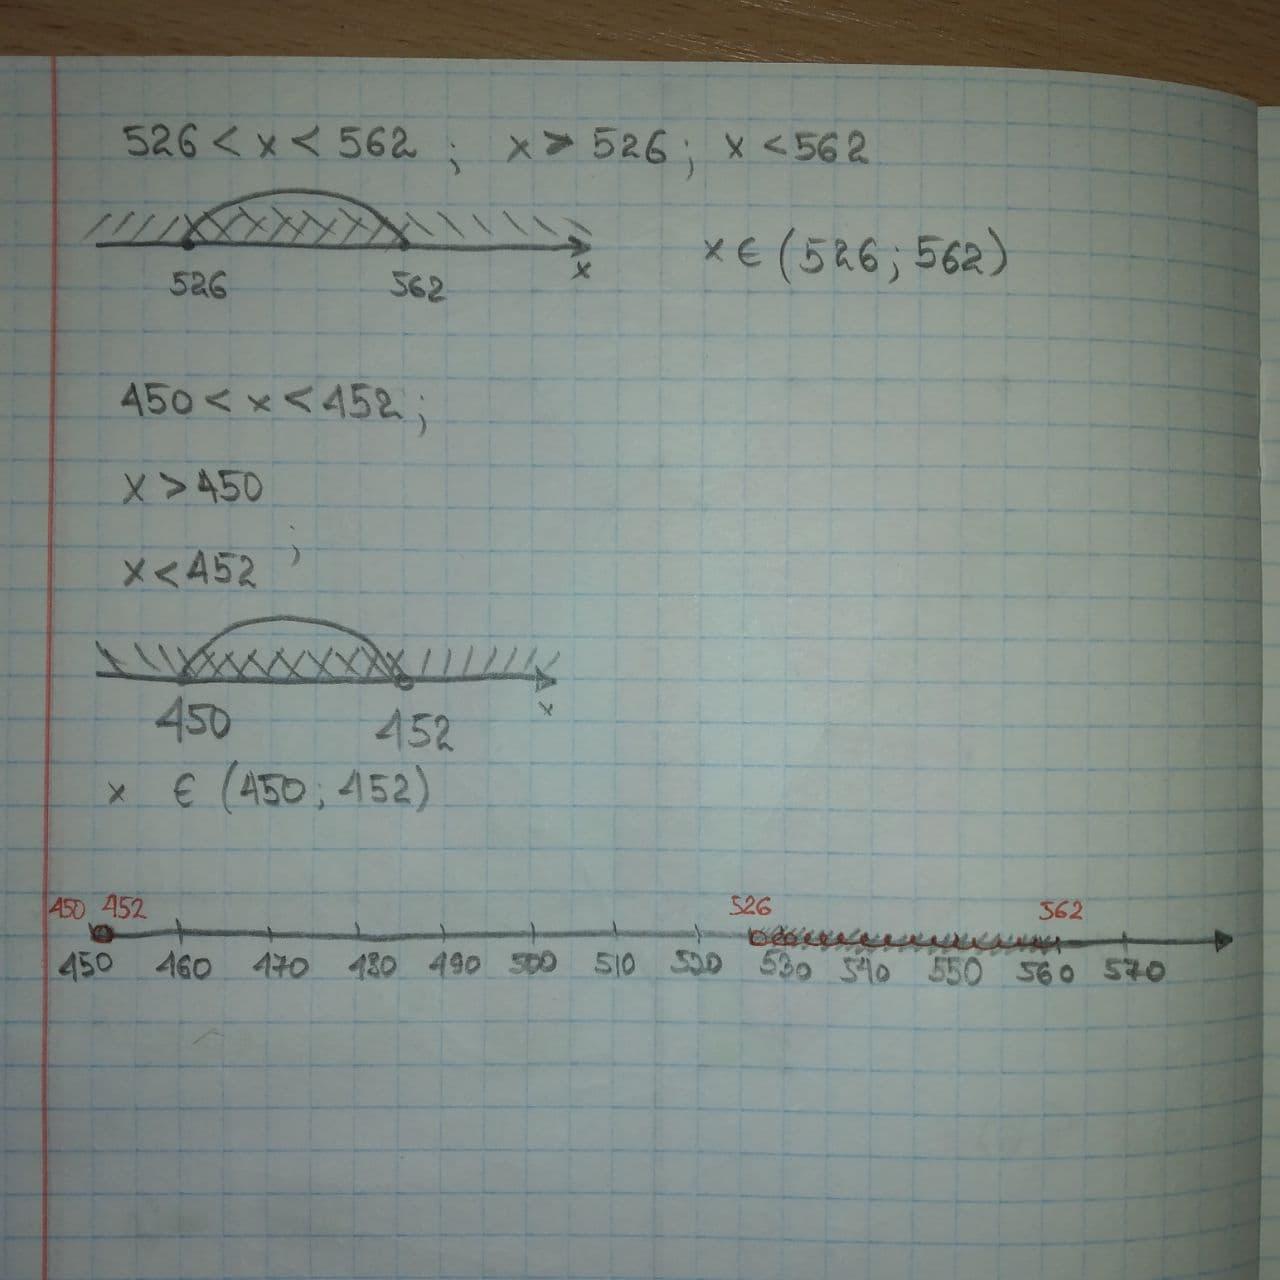 526 < x < 562 ; x > 526 ; x < 562
526 562 x
x ∈ (526 ; 562)
450 < x < 452 ;
x > 450
x < 452 ;
450 452 x
x ∈ (450 ; 452)
450 452 526 562
450 460 470 480 490 500 510 520 530 540 550 560 570